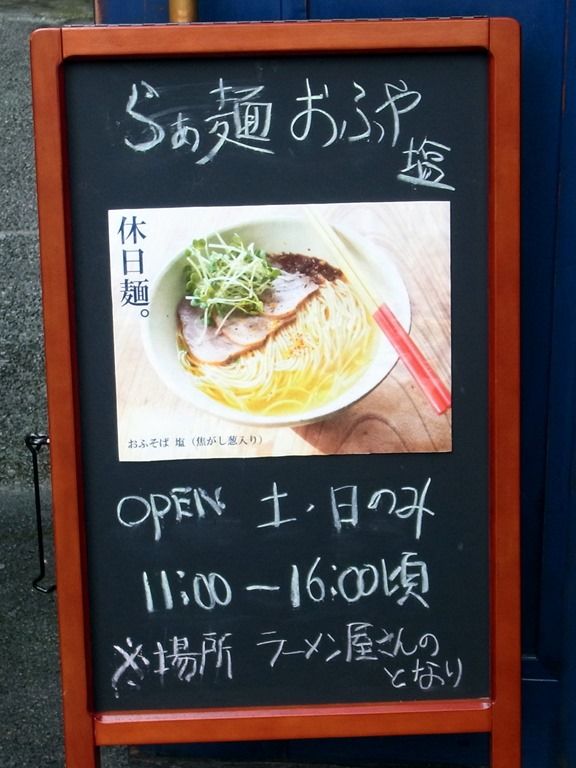 らぁ麺 おふや
塩
休日麺。
おふそば 塩（焦がし葱入り）
OPEN 土・日のみ
11:00～16:00頃
※場所 ラーメン屋さんの
となり